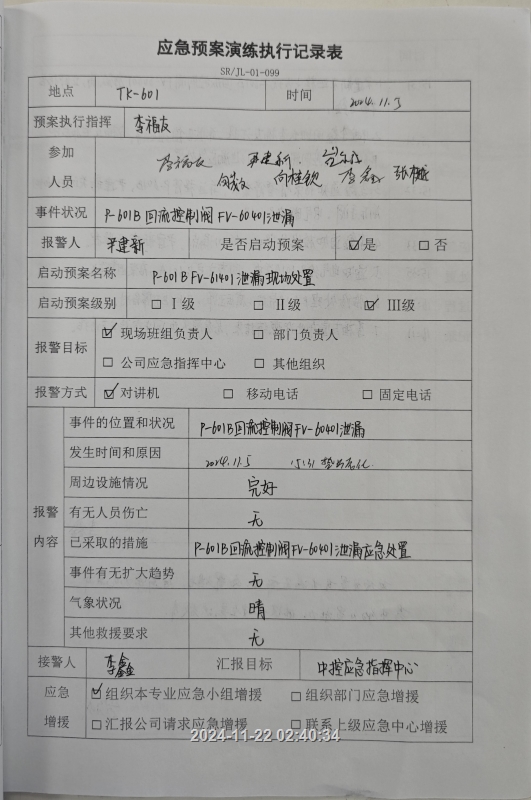 应急预案演练执行记录表
SR/JL-01-099
地点 TK-601 时间 2024.11.5
预案执行指挥 李福友
参加 李福友
人员 向桂钦 李鑫 张楠
事件状况 P-601B回流控制阀FV-60401泄漏
报警人 建新 是否启动预案 ☑是 □否
启动预案名称 P-601B FV-61401泄漏现场处置
启动预案级别 □Ⅰ级 □Ⅱ级 ☑Ⅲ级
报警目标 ☑现场班组负责人 □部门负责人
□公司应急指挥中心 □其他组织
报警方式 ☑对讲机 □移动电话 □固定电话
报警内容
事件的位置和状况 P-601B回流控制阀FV-60401泄漏
发生时间和原因 2024.11.5 15:31 垫片老化
周边设施情况 完好
有无人员伤亡 无
已采取的措施 P-601B回流控制阀FV-60401泄漏应急处置
事件有无扩大趋势 无
气象状况 晴
其他救援要求 无
接警人 李鑫 汇报目标 中控应急指挥中心
应急 ☑组织本专业应急小组增援 □组织部门应急增援
增援 □汇报公司请求应急增援 □联系上级应急中心增援
2024-11-22 02:40:34